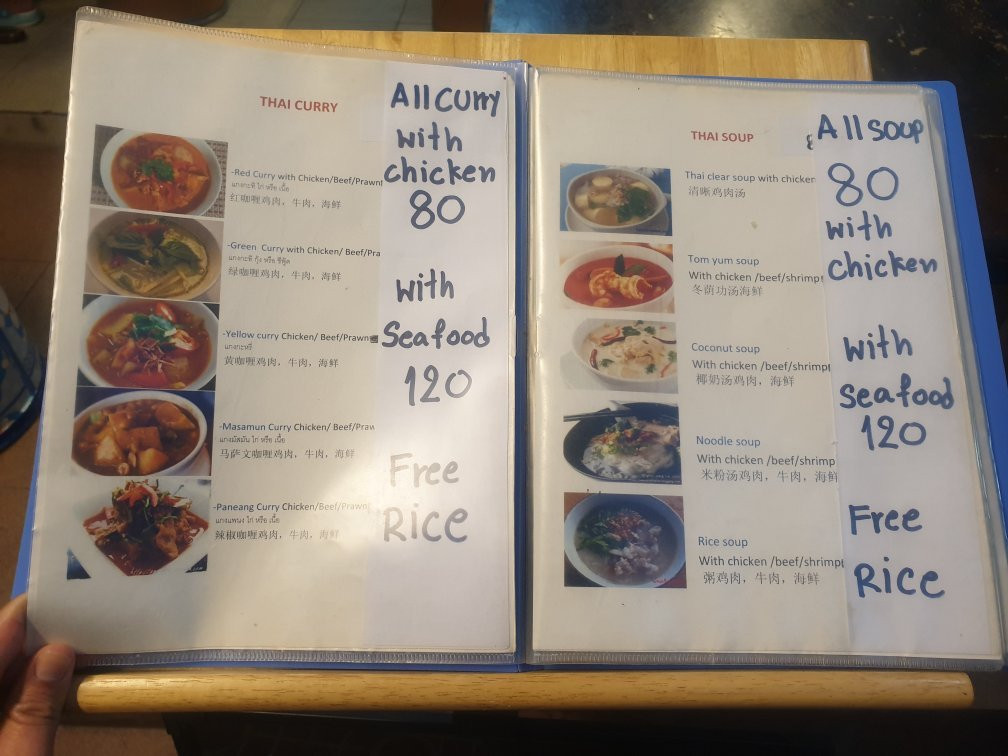 THAI CURRY
-Red Curry with Chicken/Beef/Prawn
แกงกะทิ ไก่ หรือ เนื้อ
红咖喱鸡肉，牛肉，海鲜
-Green Curry with Chicken/ Beef/Pra
绿咖喱鸡肉，牛肉，海鲜
-Yellow curry Chicken/ Beef/Prawn
แกงกะหรี่
黄咖喱鸡肉，牛肉，海鲜
-Masamun Curry Chicken/ Beef/Praw
แกงมัสมัน ไก่ หรือ เนื้อ
马萨文咖喱鸡肉，牛肉，海鲜
-Paneang Curry Chicken/Beef/Prawn
แกงแพนง ไก่ หรือ เนื้อ
辣椒咖喱鸡肉，牛肉，海鲜
All Curry
with
chicken
80
with
Seafood
120
Free
Rice
THAI SOUP
Thai clear soup with chicken
清晰鸡肉汤
Tom yum soup
With chicken /beef/shrimp
冬荫功汤海鲜
Coconut soup
With chicken /beef/shrimp
椰奶汤鸡肉，海鲜
Noodle soup
With chicken /beef/shrimp
米粉汤鸡肉，牛肉，海鲜
Rice soup
With chicken /beef/shrimp
粥鸡肉，牛肉，海鲜
All soup
80
with
chicken
with
seafood
120
Free
Rice